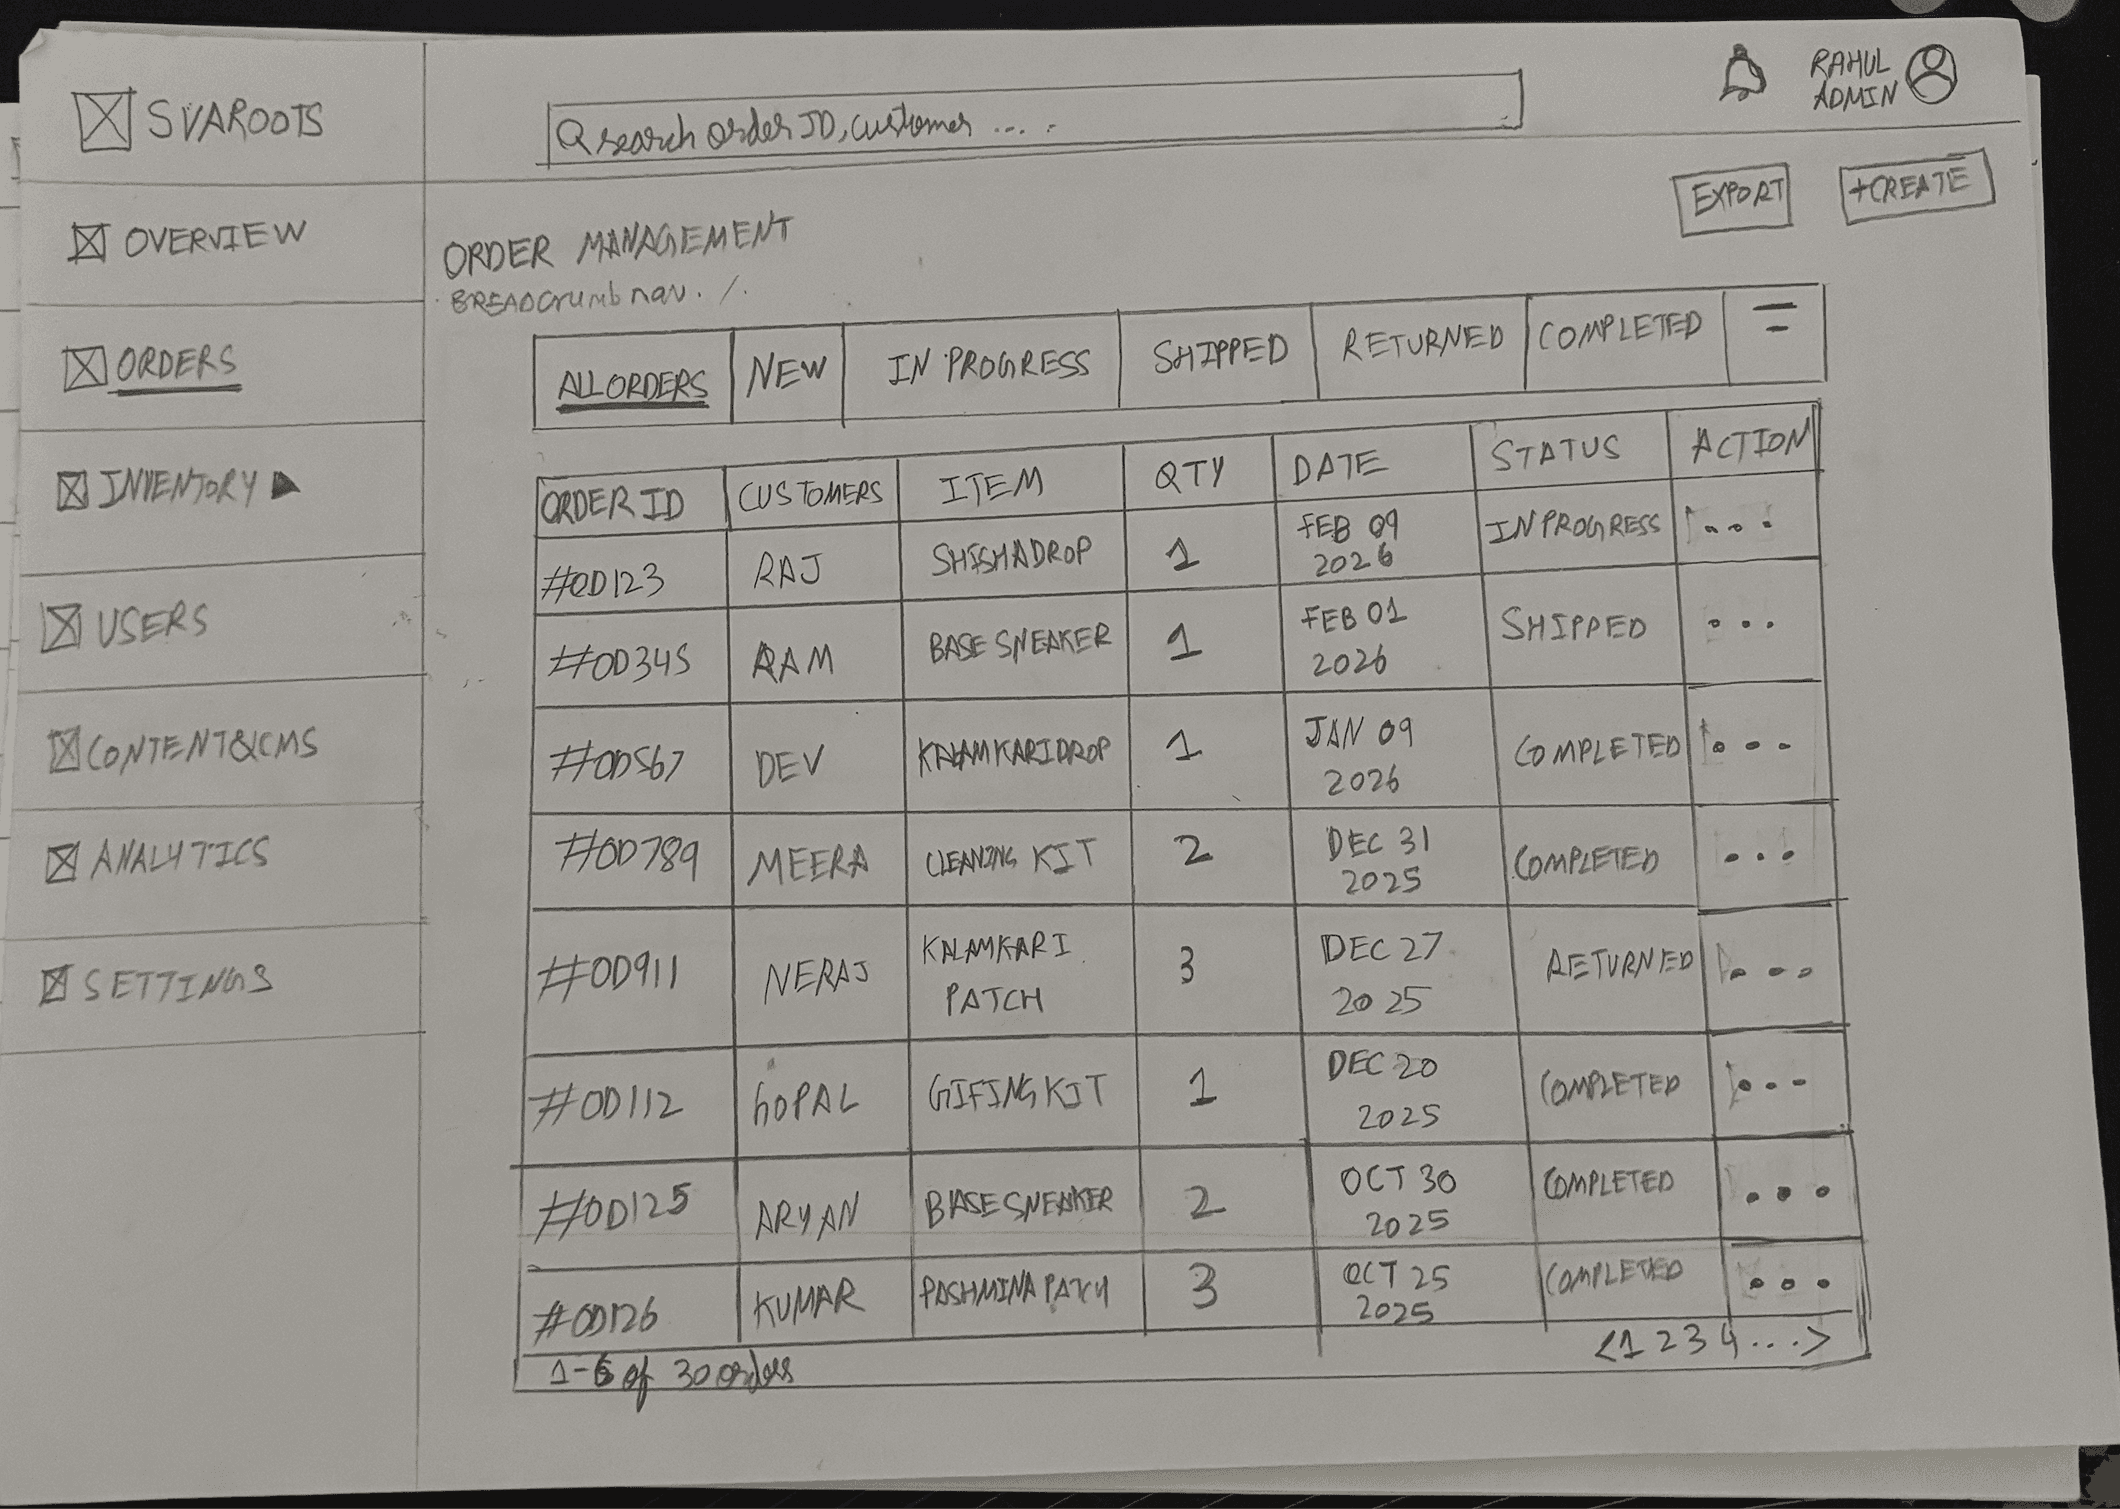 SVAROOTS
Search order ID, customer ... .
RAHUL
ADMIN
OVERVIEW
ORDERS
INVENTORY
USERS
CONTENT&CMS
ANALYTICS
SETTINGS
EXPORT
+CREATE
ORDER MANAGEMENT
BREADCrumb nav. /.
ALL ORDERS NEW IN PROGRESS SHIPPED RETURNED COMPLETED
ORDER ID CUSTOMERS ITEM QTY DATE STATUS ACTION
#OD123 RAJ SHISHADROP 1 FEB 09 2026 IN PROGRESS ...
#OD345 RAM BASE SNEAKER 1 FEB 01 2026 SHIPPED ...
#OD567 DEV KALAMKARI DROP 1 JAN 09 2026 COMPLETED ...
#OD789 MEERA CLEANING KIT 2 DEC 31 2025 COMPLETED ...
#OD911 NERAJ KALAMKARI PATCH 3 DEC 27 2025 RETURNED ...
#OD112 GOPAL GIFING KIT 1 DEC 20 2025 COMPLETED ...
#OD125 ARYAN BASE SNEAKER 2 OCT 30 2025 COMPLETED ...
#OD126 KUMAR PASHMINA PATCH 3 OCT 25 2025 COMPLETED ...
1-6 of 30 orders
<1 2 3 4 ...>